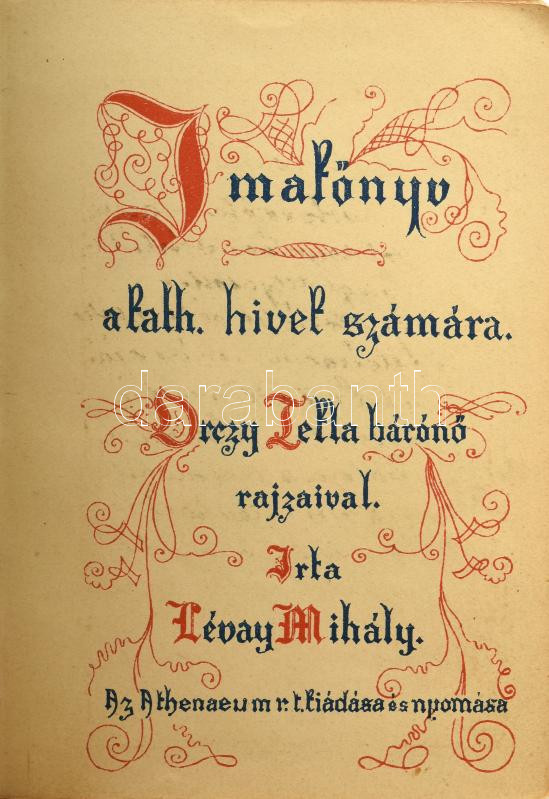 Imakönyv
a kath. hivek számára.
darabanth
Orczy Tekla bárónő
rajzaival.
Irta
Lévay Mihály.
Az Athenaeum r. t. kiádása és nyomása